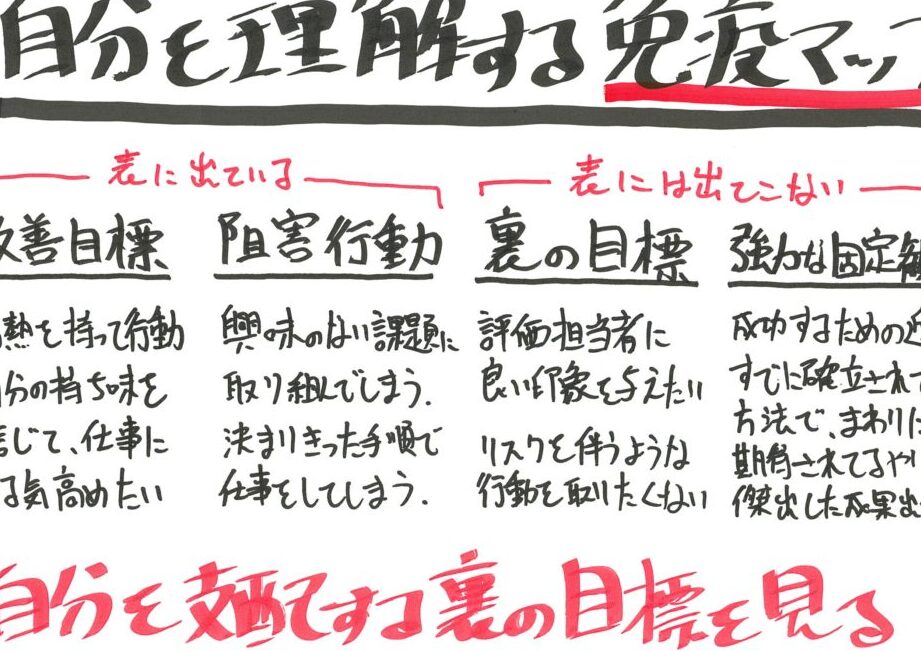 自分を理解する免疫マップ
表に出ている
表には出てこない
改善目標
阻害行動
裏の目標
強力な固定観
熱を持って行動
分の持ち味を
信じて、仕事に
る気高めたい
興味のない課題に
取り組んでしまう.
決まりきった手順で
仕事をしてしまう.
評価担当者に
良い印象を与えたい
リスクを伴うような
行動を取りたくない
成功するための
すでに確立されて
方法で、まわりに
期待されてるやり
傑出した成果出
自分を支配する裏の目標を見る